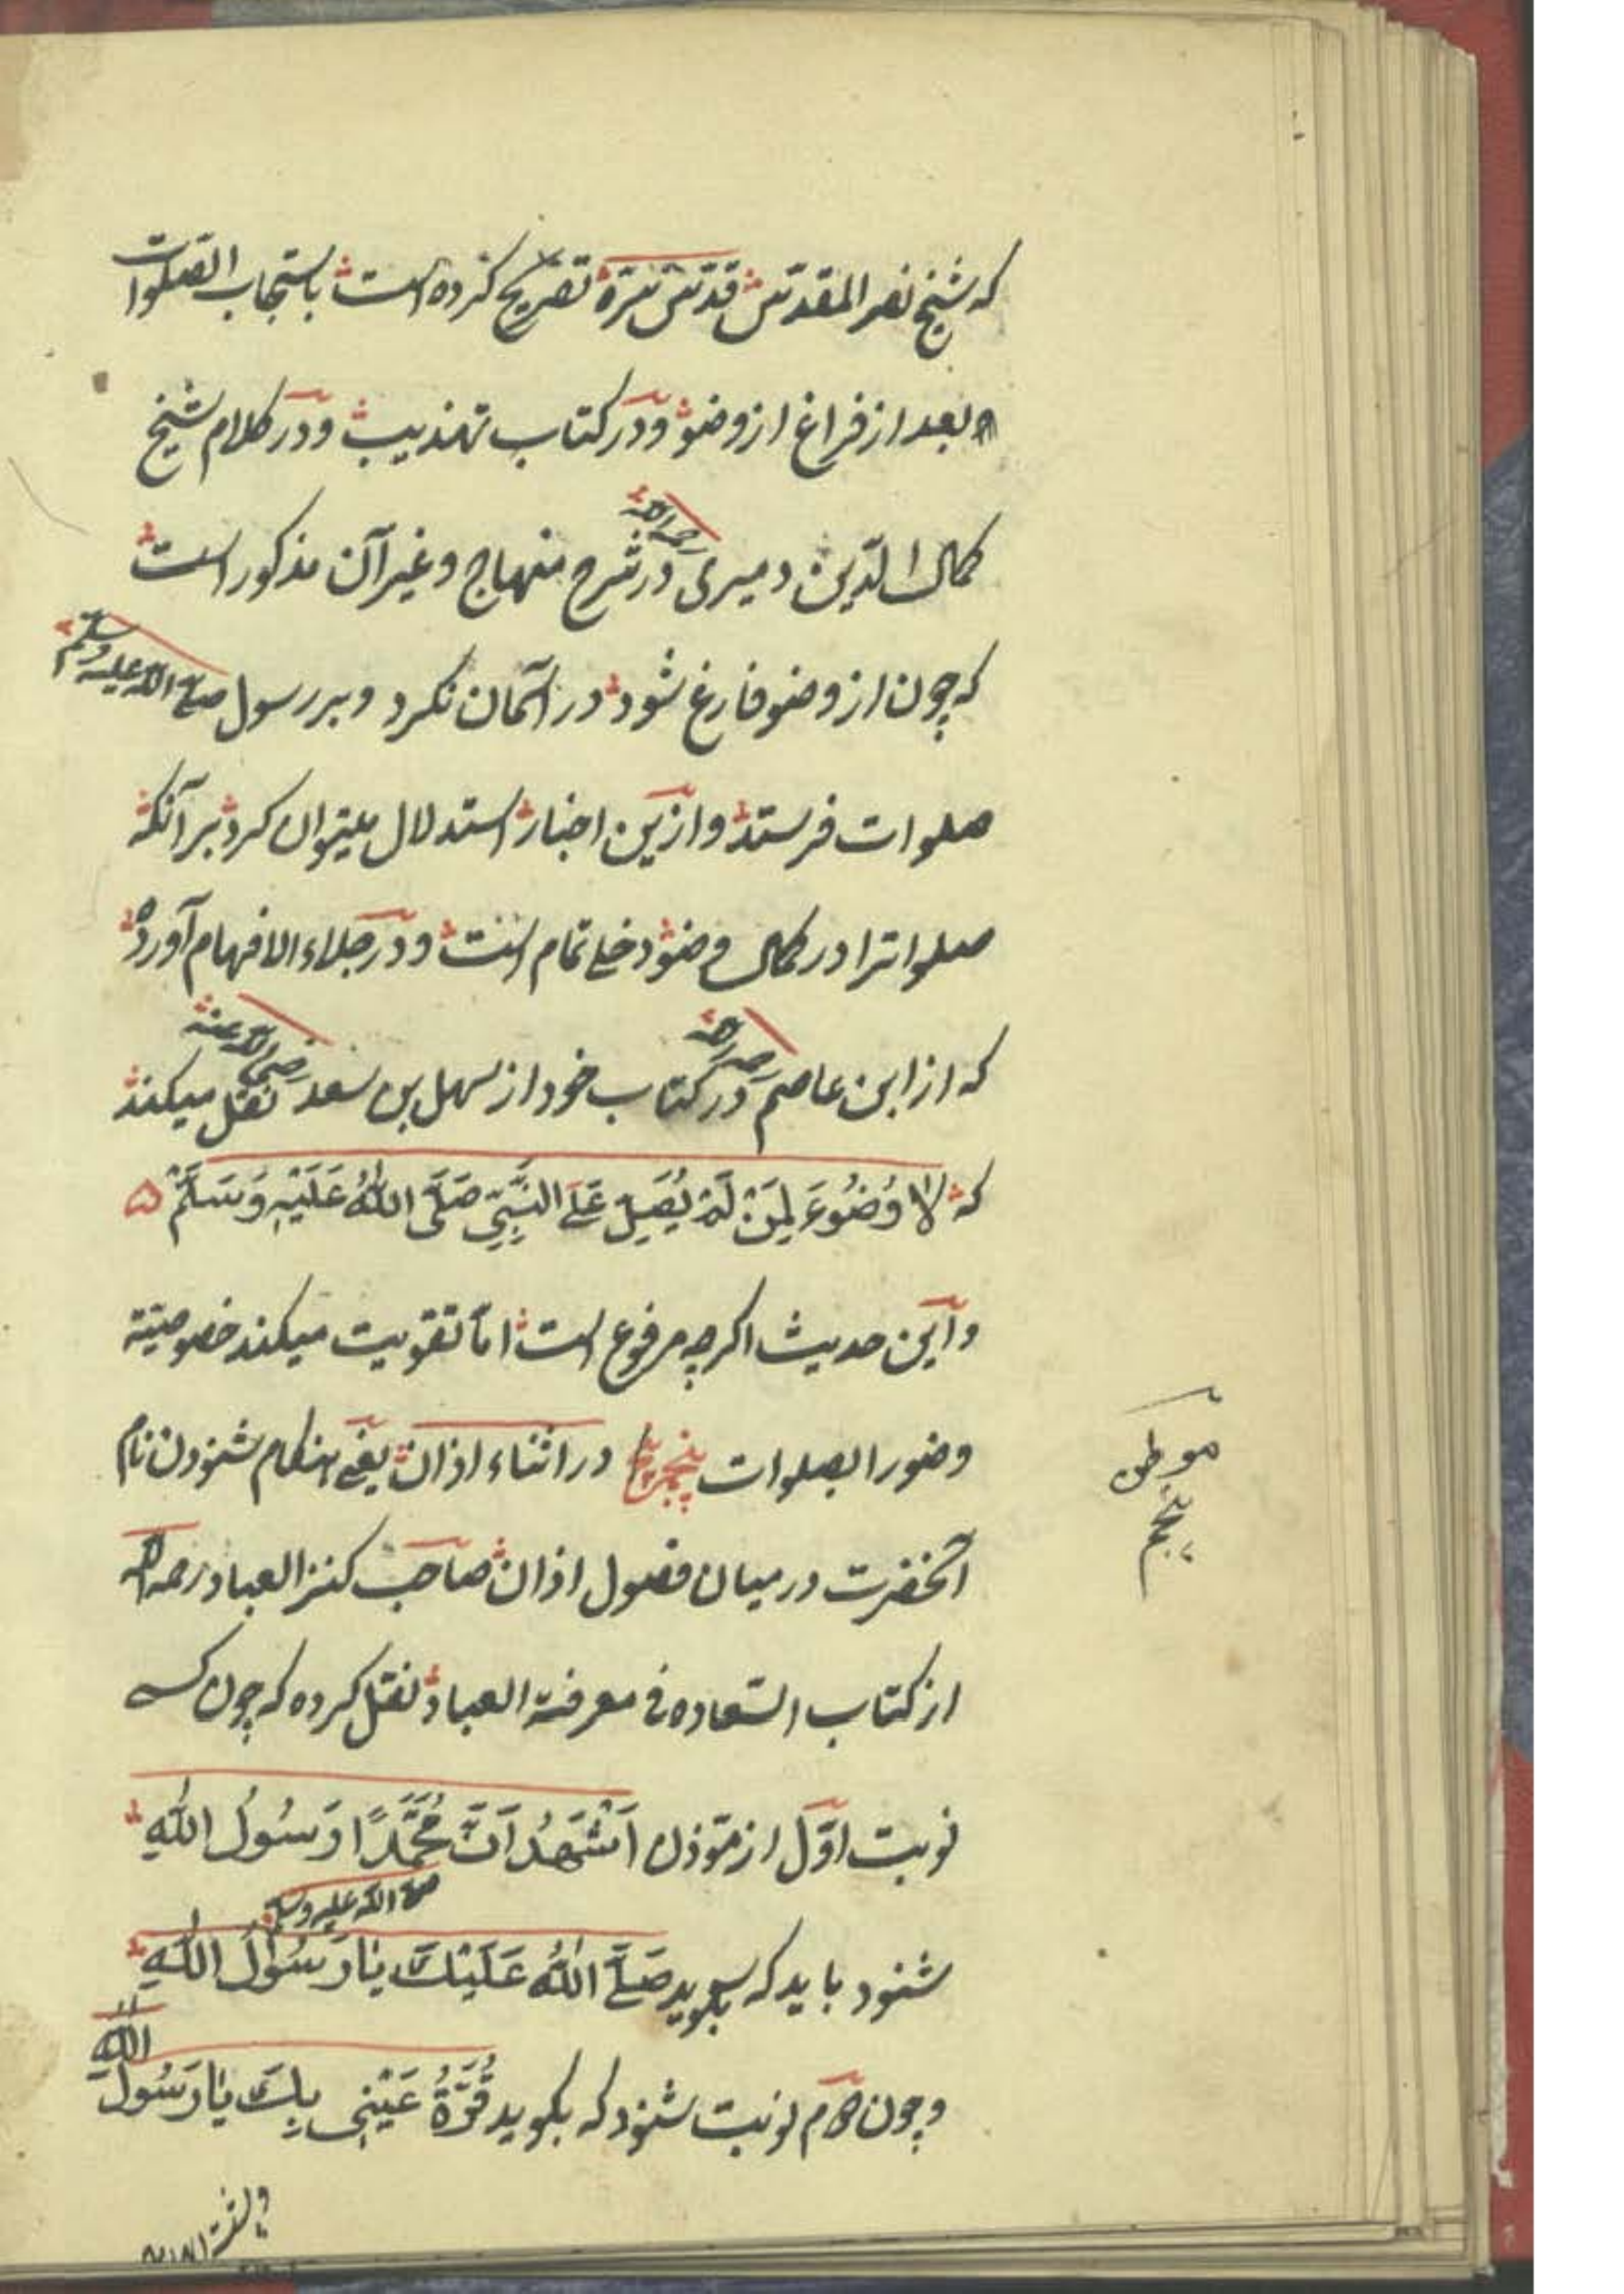 که شیخ نصر المقدس قدس سره تصریح کرده است باستحباب الصلوات
بعد از فراغ از وضو و در کتاب تهذیب و در کلام شیخ
کمال الدین دمیری رحمه الله در شرح منهاج و غیر آن مذکور است
که چون از وضو فارغ شود در آسمان نکرد و بر رسول صلی الله علیه وسلم
صلوات فرستد و ازین اخبار استدلال میتوان کرد بر آنکه
صلواترا در کمال وضو دخلی تمام است و در جلاء الافهام آورده
که از ابن عاصم رحمه الله در کتاب خود از سهل بن سعد رضی الله عنه نقل میکند
که لَا وُضُوءَ لِمَنْ لَمْ یُصَلِّ عَلَی النَّبِیِّ صَلَّی اللهُ عَلَیْهِ وَسَلَّمْ ۵
و این حدیث اکرچه مرفوع است اما تقویت میکند خصوصیّة
وضورا بصلوات پنجم در اثناء اذان یعنی هنکام شنودن نام
آنحضرت در میان فصول اذان صاحب کنز العباد رحمه الله
از کتاب السّعاده فی معرفة العباد نقل کرده که چون کسی
نوبت اوّل از مؤذن اَشْهَدُ اَنَّ مُحَمَّدًا رَسُولُ اللهِ
شنود باید که بکوید صَلَّی اللهُ عَلَیْكَ یَا رَسُوْلَ اللهِ صلی الله علیه وسلم
و چون دوم نوبت شنود که بکوید قُرَّةُ عَیْنِی بِكَ یَا رَسُولَ اللهِ
موطن
پنجم